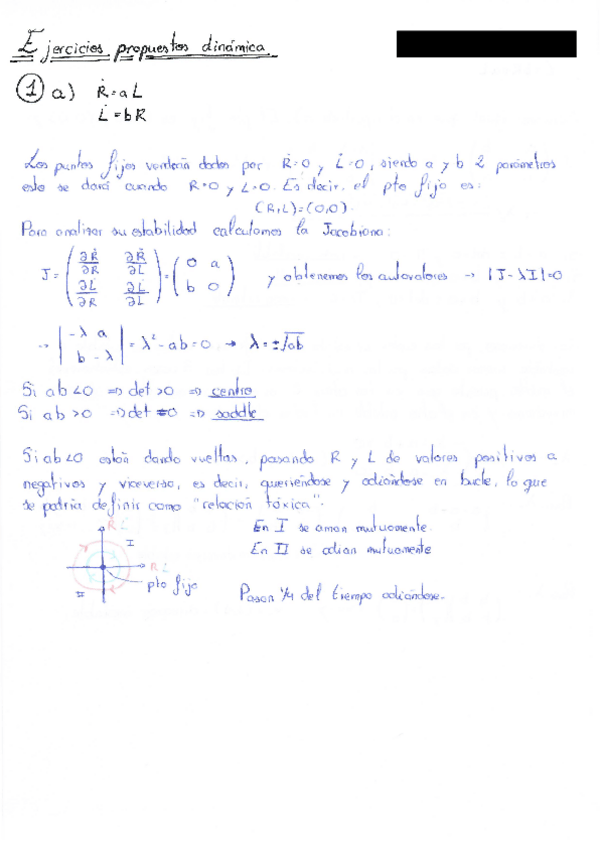 Ejercicios propuestos dinámica
1 a) Ṙ = aL
L̇ = bR
Los puntos fijos vendrán dados por Ṙ=0 y L̇=0, siendo a y b 2 parámetros
esto se dará cuando R=0 y L=0. Es decir, el pto fijo es:
(R,L)=(0,0).
Para analizar su estabilidad calculamos la Jacobiana:
J = (∂Ṙ/∂R ∂Ṙ/∂L ; ∂L̇/∂R ∂L̇/∂L) = (0 a ; b 0) y obtenemos los autovalores → |J-λI|=0
→ |-λ a ; b -λ| = λ²-ab=0 → λ=±√ab
Si ab<0 ⇒ det >0 ⇒ centro
Si ab>0 ⇒ det <0 ⇒ saddle
Si ab<0 están dando vueltas, pasando R y L de valores positivos a
negativos y viceversa, es decir, queriéndose y odiándose en bucle, lo que
se podría definir como "relación tóxica".
R L
I
R L
II
pto fijo
En I se aman mutuamente.
En II se odian mutuamente
Pasan 1/4 del tiempo odiándose.